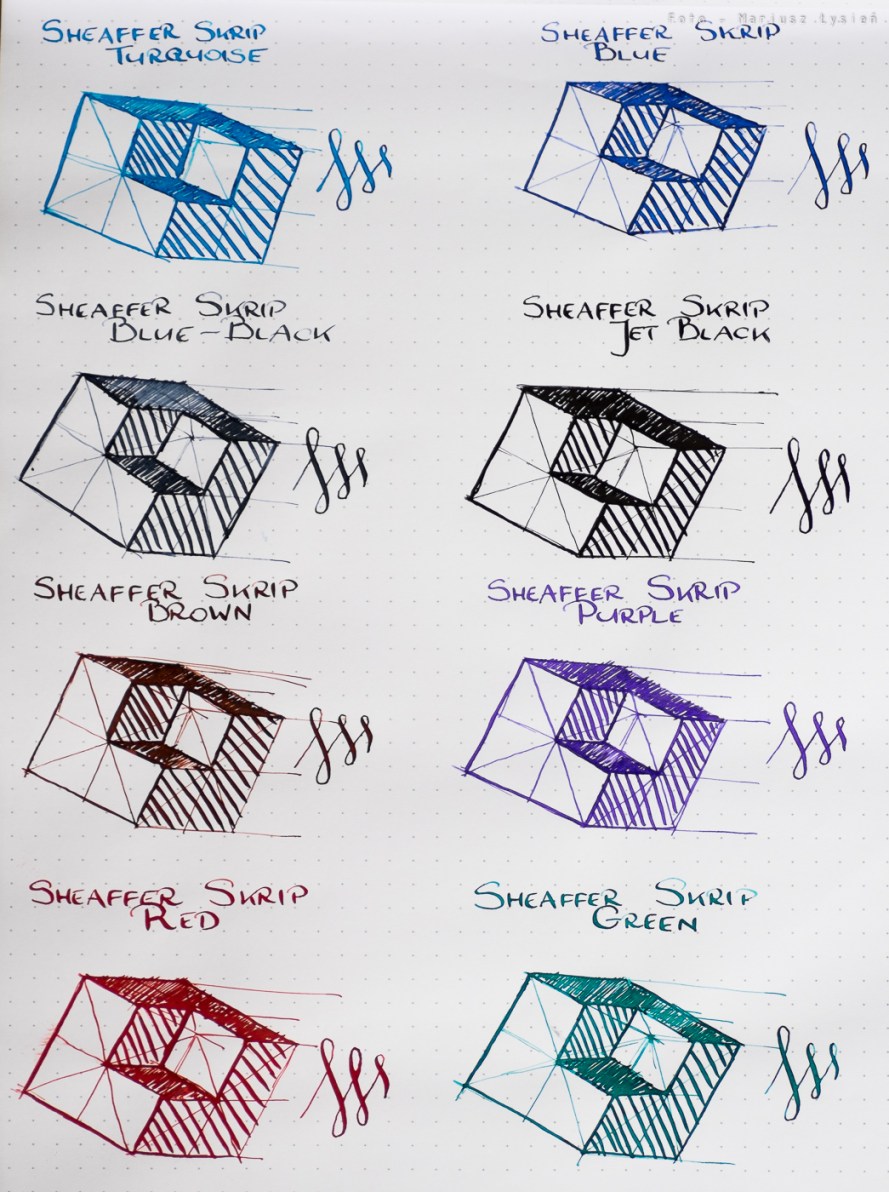 Foto - Mariusz Łysień
SHEAFFER SKRIP
TURQUOISE
SHEAFFER SKRIP
BLUE
SHEAFFER SKRIP
BLUE-BLACK
SHEAFFER SKRIP
JET BLACK
SHEAFFER SKRIP
BROWN
SHEAFFER SKRIP
PURPLE
SHEAFFER SKRIP
RED
SHEAFFER SKRIP
GREEN